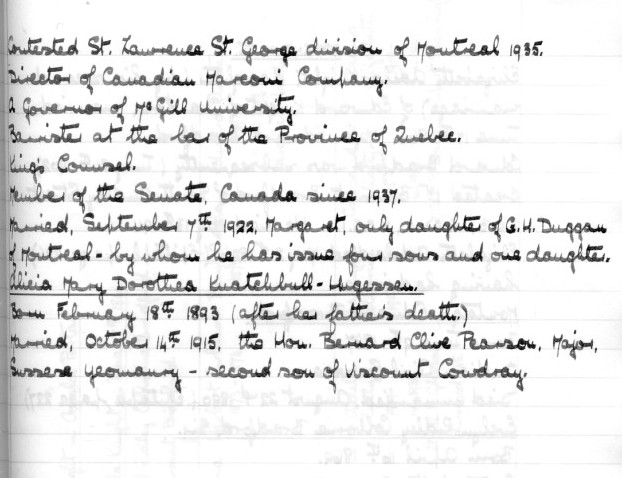 Contested St. Lawrence St. George division of Montreal 1935.
Director of Canadian Marconi Company.
A Governor of McGill University.
Barrister at the bar of the Province of Quebec.
King's Counsel.
Member of the Senate, Canada since 1937.
Married, September 7th 1922, Margaret, only daughter of G.H. Duggan
of Montreal - by whom he has issue four sons and one daughter.
Alicia Mary Dorothea Knatchbull-Hugessen.
Born February 18th 1893 (after her father's death.)
Married, October 14th 1915, the Hon. Bernard Clive Pearson, Major,
Sussex Yeomanry - second son of Viscount Cowdray.